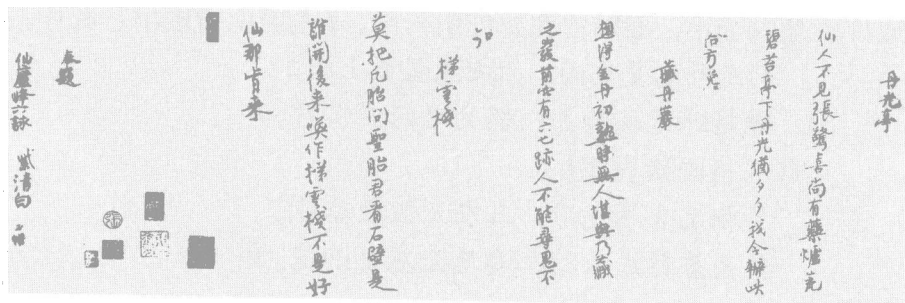 丹光亭
仙人不見張驚喜尚有藥爐荒
碧苔亭下丹光猶夕夕我今辦此
方
藏丹巖
想得金丹初熟時無人堪與乃藏
之巖前空有六七跡人不能尋鬼不
知
梯雲棧
莫把凡胎問聖胎君看石壁是
誰開後來喚作梯雲棧不是好
仙那肯來
奉題
仙廬峰六詠 紫清白